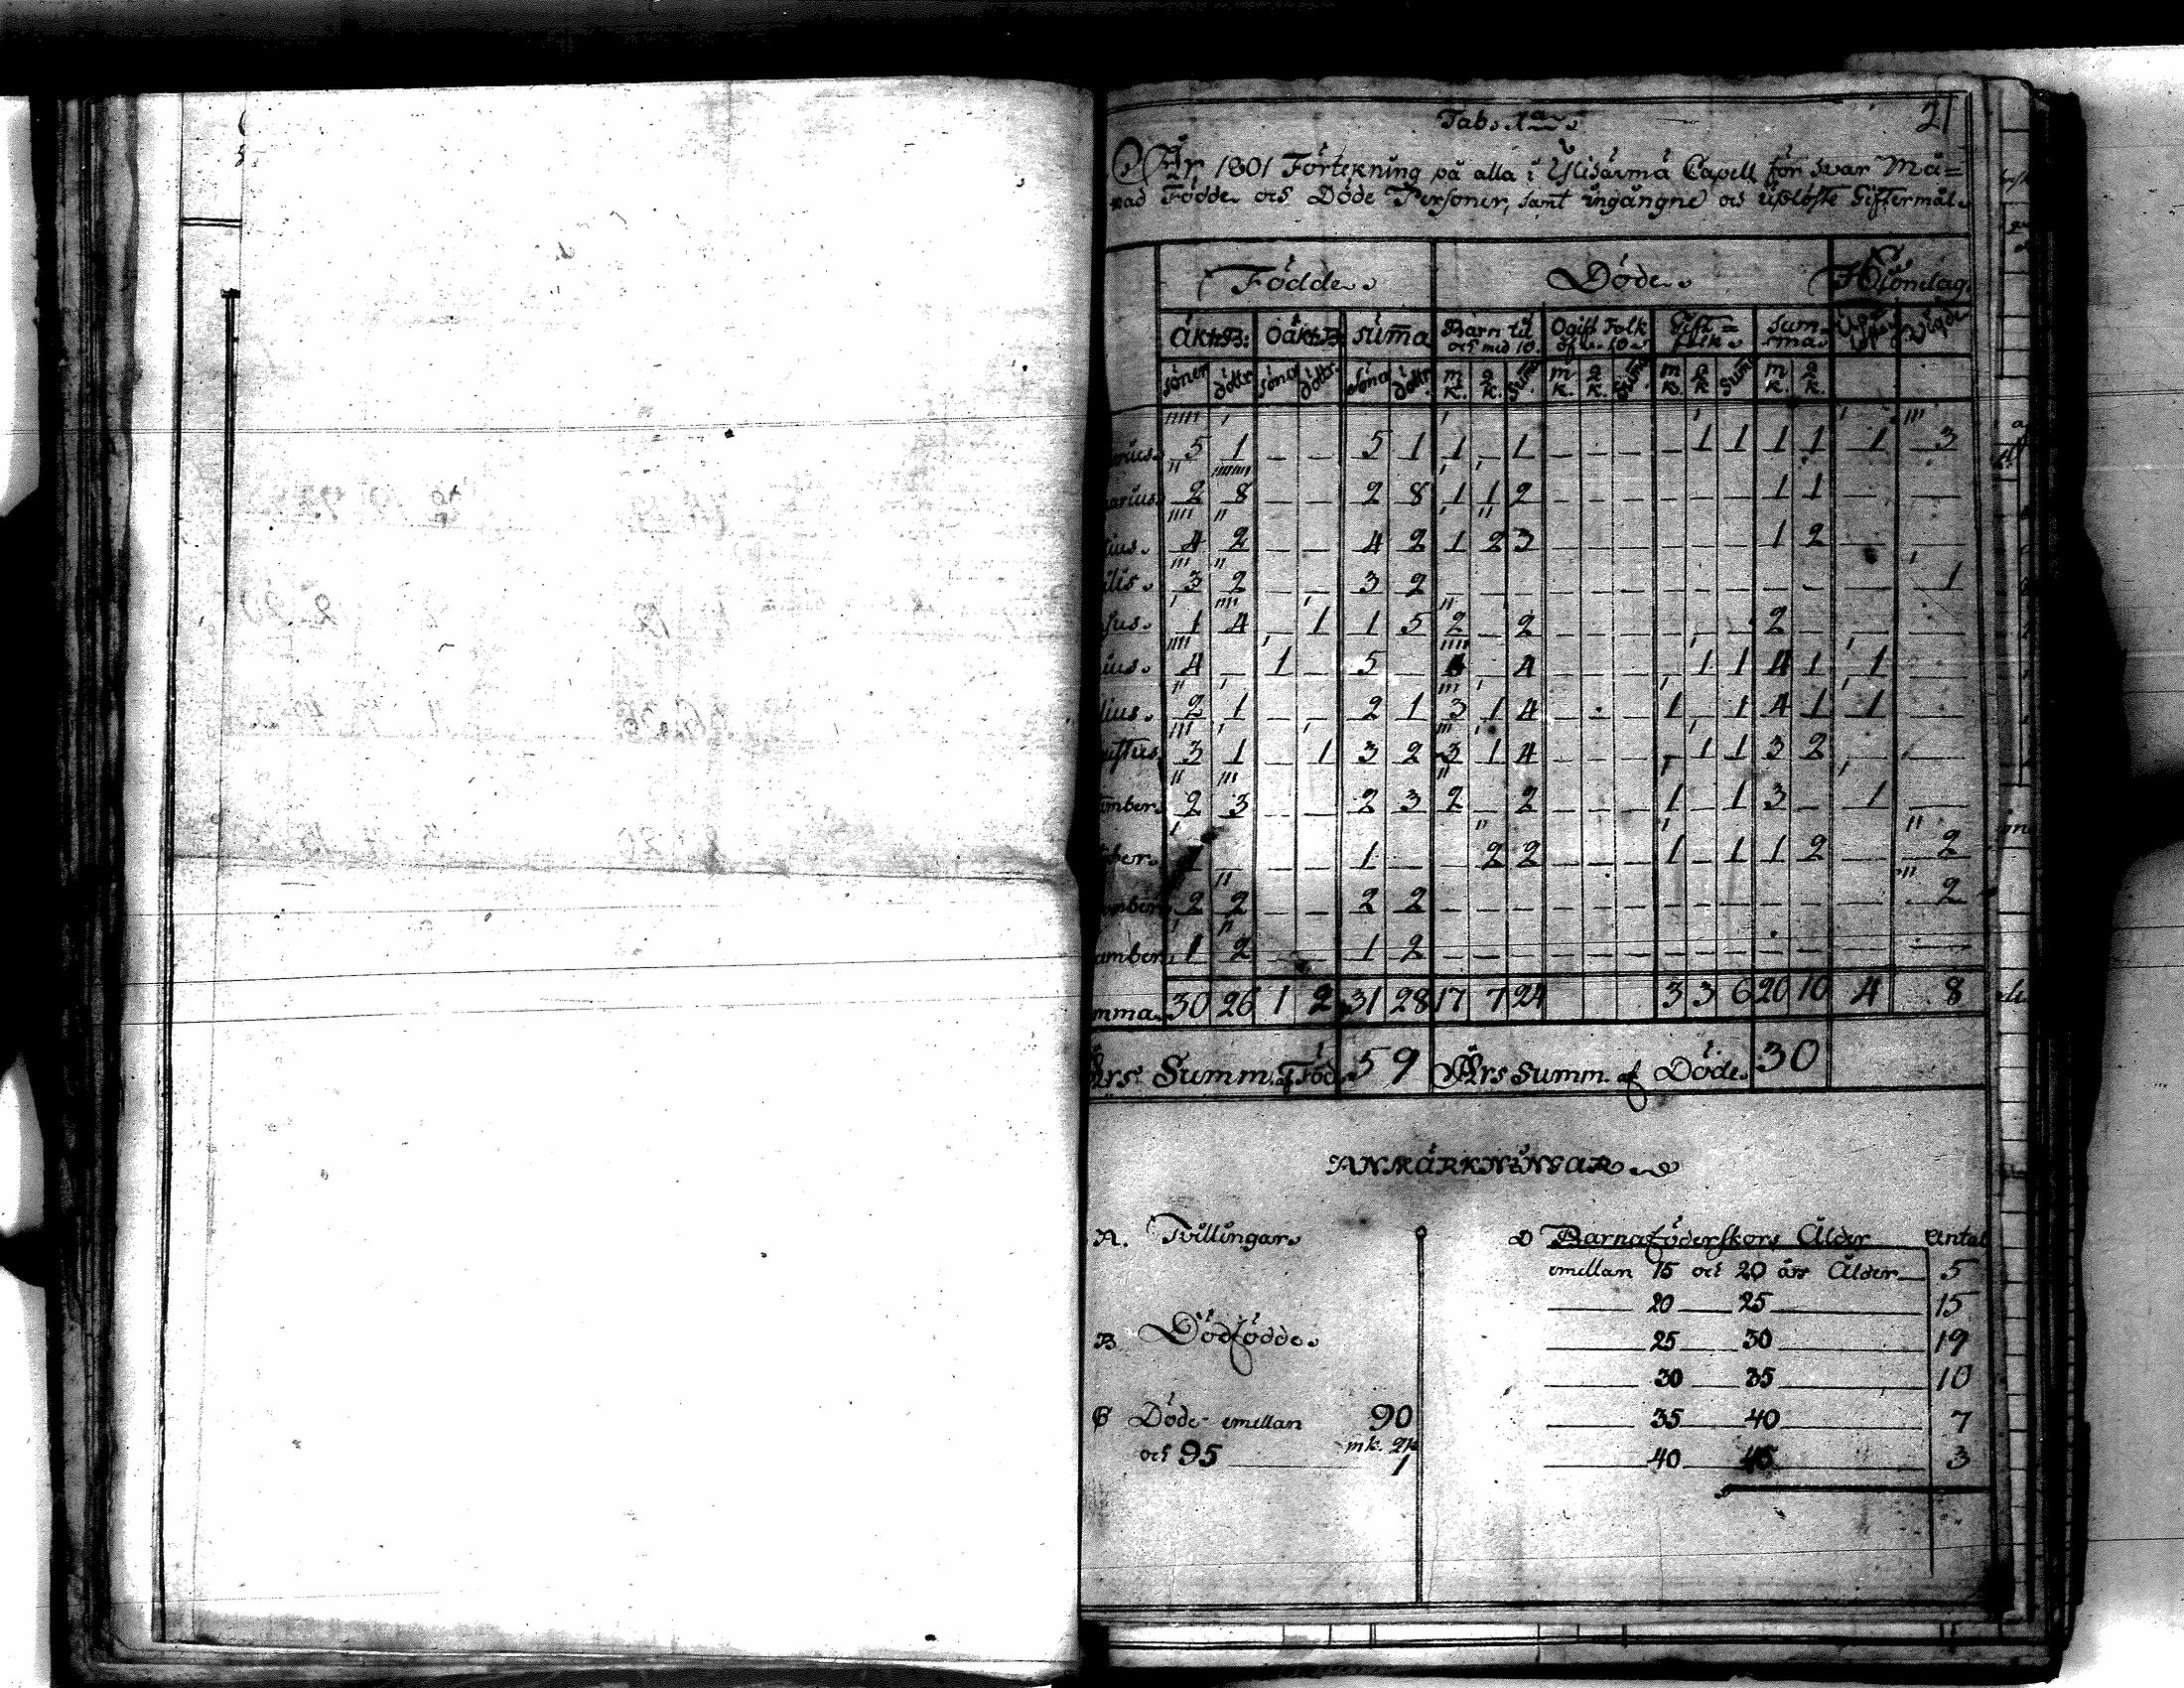 21
Tab. 1a
År 1801 Förtekning på alla i Capell för hvar Må=
nad Födde och Döde Personer, samt ingångne och uplöste Giftermål
Födde Döde
äkt: B: Oäkt: B summa Barn til och med 10. Ogift Folk öf. 10 Gift= folk summa Vigde
söner döttr söner döttr. söner döttr. mk. qk. Sum mk. qk. Sum mk. qk. Sum mk. qk.
arius. 5 1 _ _ 5 1 1 _ 1 _ _ _ _ 1 1 1 1 1 3
uarius. 2 8 _ _ 2 8 1 1 2 _ _ _ _ _ _ 1 1 _ _
tius. 4 2 _ _ 4 2 1 2 3 _ _ _ _ _ _ 1 2 _ _
ilis. 3 2 _ _ 3 2 _ _ _ _ _ _ _ _ _ _ _ _ 1
jus. 1 4 _ 1 1 5 2 _ 2 _ _ _ _ _ _ 2 _ _ _
ius. 4 _ 1 _ 5 _ 4 _ 4 _ _ _ _ 1 1 4 1 1 _
lius. 2 1 _ _ 2 1 3 1 4 _ _ _ 1 _ 1 4 1 1 _
gustus. 3 1 _ 1 3 2 3 1 4 _ _ _ _ 1 1 3 2 _ _
tember. 2 3 _ _ 2 3 2 _ 2 _ _ _ 1 _ 1 3 _ 1 _
ober. 1 _ _ _ 1 _ _ 2 2 _ _ _ 1 _ 1 1 2 _ 2
ember 2 2 _ _ 2 2 _ _ _ _ _ _ _ _ _ _ _ _ 2
ember. 1 2 _ _ 1 2 _ _ _ _ _ _ _ _ _ _ _ _ _
mma. 30 26 1 2 31 28 17 7 24 3 3 6 20 10 4 8
Års Summ. af Föd. 59 Års Summ. af Döde. 30
ANMÄRKNINGAR
A. Tvillingar
B Dödfödde
C Döde emellan 90
och 95 mk. qk
1
D Barnaföderskors Ålder Antal
emellan 15 och 20 års Ålder 5
20 25 15
25 30 19
30 35 10
35 40 7
40 45 3